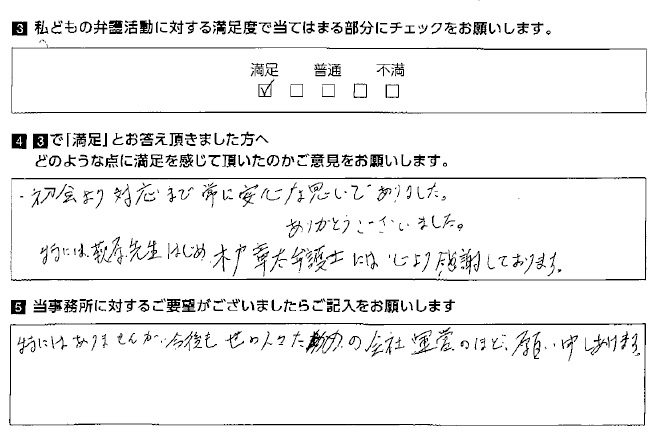 3 私どもの弁護活動に対する満足度で当てはまる部分にチェックをお願いします。
満足 普通 不満
4 3で「満足」とお答え頂きました方へ
どのような点に満足を感じて頂いたのかご意見をお願いします。
・初会より対応まで常に安心な思いでありました。
ありがとうございました。
特には萩原先生はじめ 木戸章太弁護士には心より感謝しております。
5 当事務所に対するご要望がございましたらご記入をお願いします
特にはありませんが、今後も世の人々た 助力の会社運営のほど、願い申しあげます。